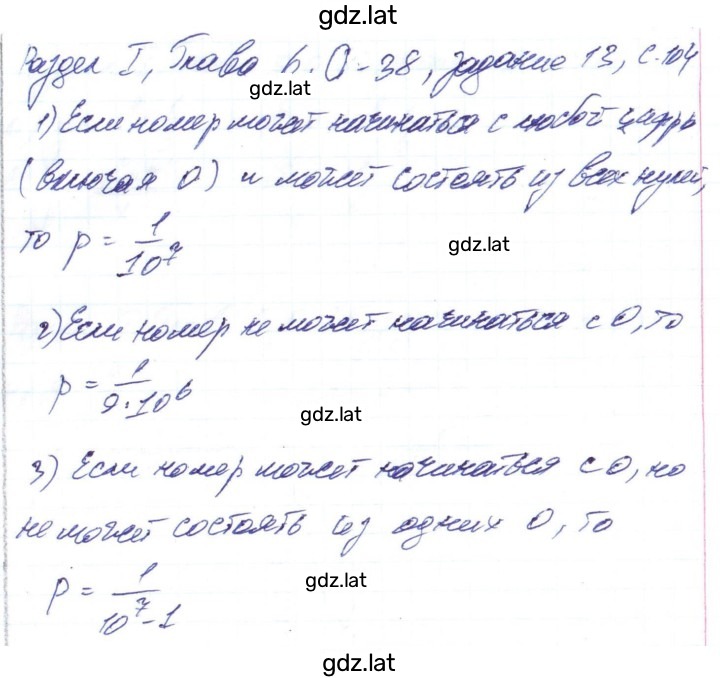 gdz.lat
Раздел I, Глава 6. О-38, задание 13, с. 104
gdz.lat
1) Если номер может начинаться с любой цифры
(включая 0) и может состоять из всех нулей,
то p = 1/10^7
gdz.lat
2) Если номер не может начинаться с 0, то
p = 1/(9·10^6)
gdz.lat
3) Если номер может начинаться с 0, но
не может состоять из одних 0, то
p = 1/(10^7-1)
gdz.lat
gdz.lat